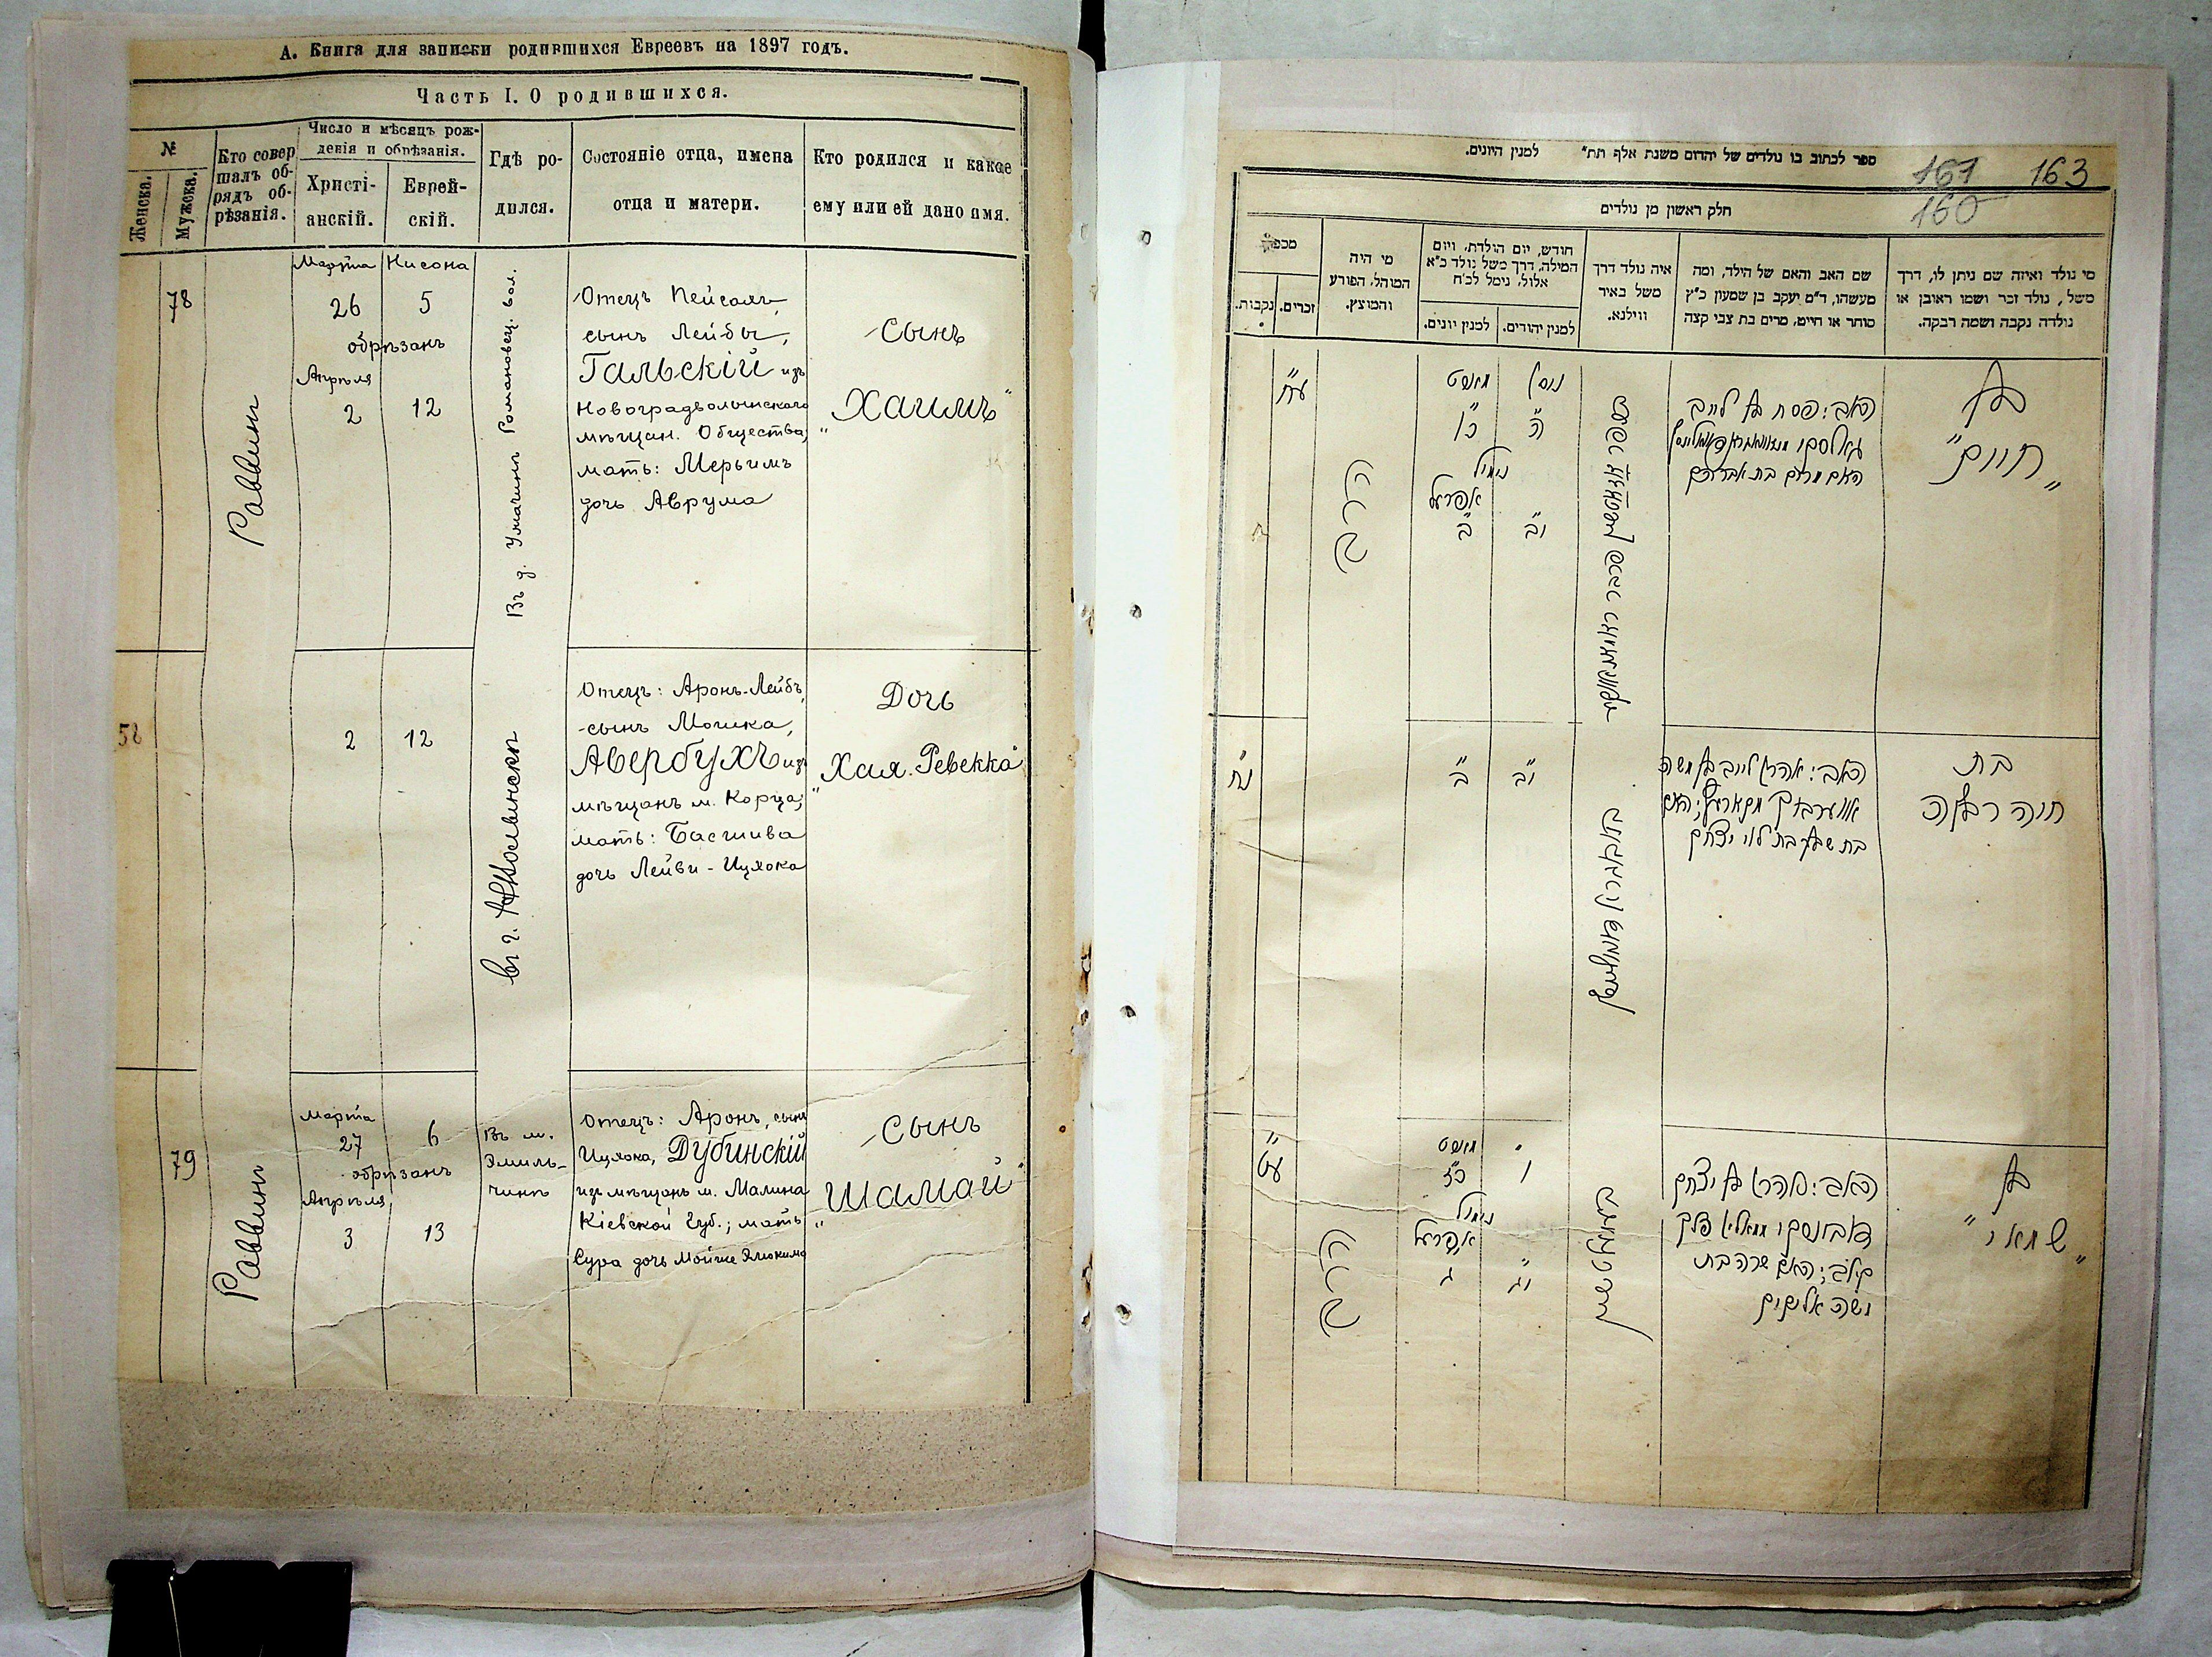 А. Книга для записки родившихся Евреевъ на 1897 годъ.
Часть I. О родившихся.
№
Женска.
Мужеска.
Кто совер
шалъ об-
рядъ об-
рѣзанія.
Число и мѣсяцъ рож-
денія и обрѣзанія.
Христі-
анскій.
Еврей-
скій.
Гдѣ ро-
дился.
Состояніе отца, имена
отца и матери.
Кто родился и какое
ему или ей дано имя.
78
Раввинъ
Марта Нисона
26 5
обрѣзанъ
Апрѣля
2 12
Въ д. Умачинѣ Романовец. вол.
Отецъ Пейсахъ,
сынъ Лейбы,
Гальскій изъ
Новоградволынскаго
мѣщан. Общества,
мать: Мерьимъ
дочь Аврума
Сынъ
„Хаимъ"
58
2 12
въ г. Нволынскѣ
Отецъ: Аронъ-Лейбъ,
сынъ Мошка,
Авербухъ изъ
мѣщанъ м. Корца;
мать: Басшива
дочь Лейви-Ицхока
Дочь
„Хая-Ревекка"
79
Раввинъ
Марта
27 6
обрѣзанъ
Апрѣля
3 13
Въ м.
Эмиль-
чинѣ
Отецъ: Аронъ, сынъ
Ицхока, Дубинскій
изъ мѣщанъ м. Малина
Кіевской Губ.; мать
Сура дочь Мойше Элюкима
Сынъ
„Шамай"
161 163
160
ספר לכתוב בו נולדים של יהדום משנת אלף תת״ למנין היונים.
חלק ראשון מן נולדים
מכפר
נקבות.
זכרים.
מי היה
המוהל, הפורע
והמוצץ.
חודש, יום הולדת, ויום
המילה, דרך משל נולד כ״א
אלול, נימל לכ״ח
למנין יהודים.
למנין יונים.
איה נולד דרך
משל באיר
ווילנא.
שם האב והאם של הילד, ומה
מעשהו, ד״מ יעקב בן שמעון כ״ץ
סוחר או חייט, מרים בת צבי קצה
מי נולד ואיזה שם ניתן לו, דרך
משל, נולד זכר ושמו ראובן או
נולדה נקבה ושמה רבקה.
ע״ח
הרב
ניסן מארט
ה״ כ״ו
נימול
אפריל
י״ב ב״
האב: פסח בן לייב
גאלסקי
האם מרים בת אברהם
בן
„חיים"
נ״ח
י״ב ב״
האב: אהרן לייב בן משה
אווערבוך מקארעץ; האם
בת שבע בת לוי יצחק
בת
חיה רבקה
ע״ט
הרב
מארט
ו כ״ז
נימול
אפריל
י״ג ג
האב: אהרן בן יצחק
דובינסקי ממאלין פלך
קיוב; האם שרה בת
משה אליקים
בן
„שמאי"